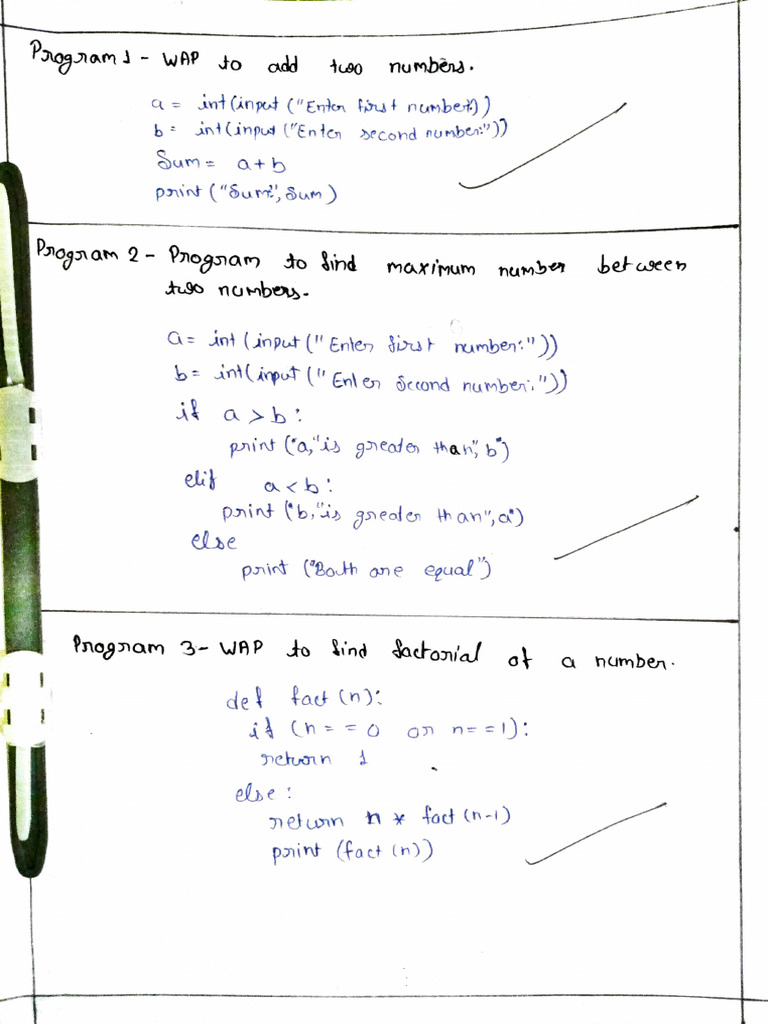 Program 1 - WAP to add two numbers.
a = int(input ("Enter first number:))
b = int(input ("Enter second number:"))
Sum = a+b
print ("Sum:", Sum)
Program 2 - Program to find maximum number between
two numbers.
a = int (input ("Enter first number:"))
b = int(input ("Enter Second number:"))
if a > b :
print ("a, "is greater than", b")
elif a < b :
print ("b, "is greater than", a")
else
print ("Both are equal")
Program 3 - WAP to find factorial of a number.
def fact (n):
if (n = = 0 or n = = 1):
return 1
else :
return n * fact (n-1)
print (fact (n))